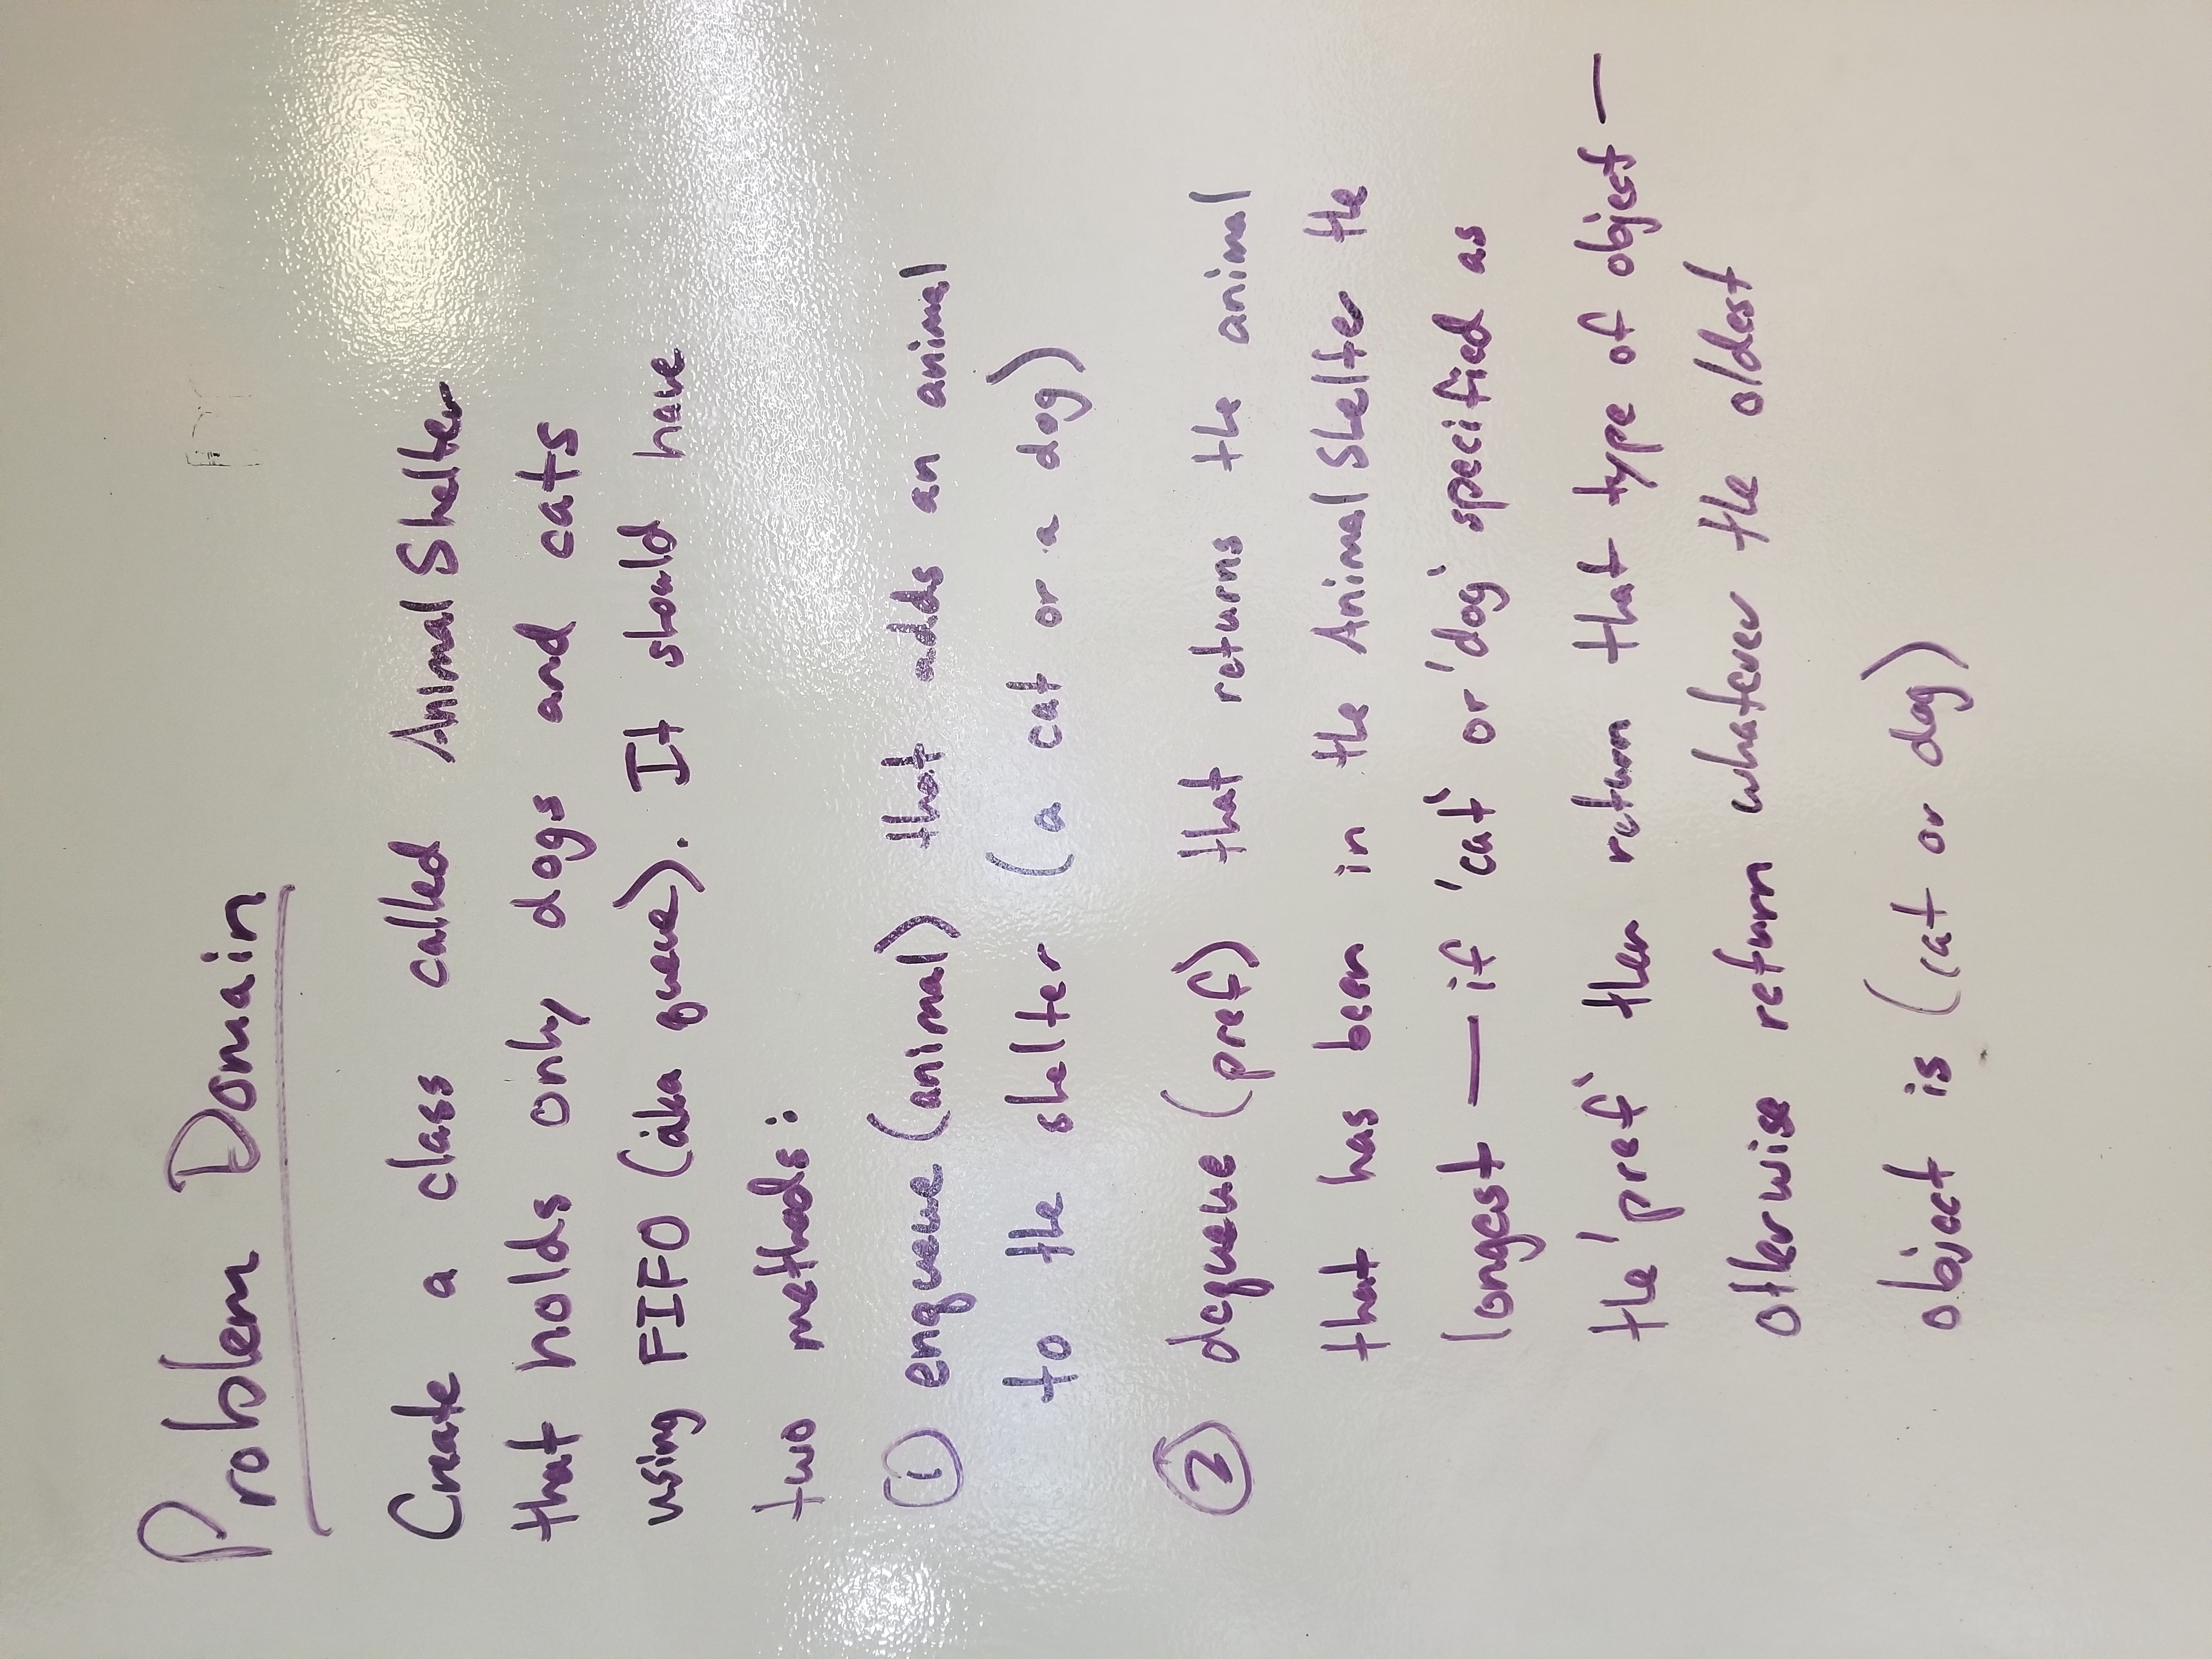 Problem Domain
Create a class called AnimalShelter
that holds only dogs and cats
using FIFO (aka queue). It should have
two methods:
① enqueue (animal) that adds an animal
to the shelter (a cat or a dog)
② dequeue (pref) that returns the animal
that has been in the AnimalShelter the
longest — if 'cat' or 'dog' specified as
the 'pref' then return that type of object —
otherwise return whatever the oldest
object is (cat or dog)